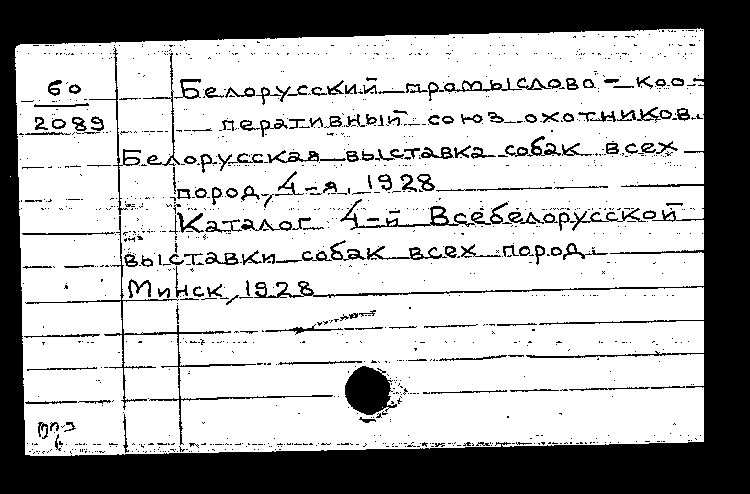 бо
2089
Белорусский промыслово-коо-
перативный союз охотников.
Белорусская выставка собак всех
пород, 4-я, 1928
Каталог 4-й Всебелорусской
выставки собак всех пород.
Минск, 1928